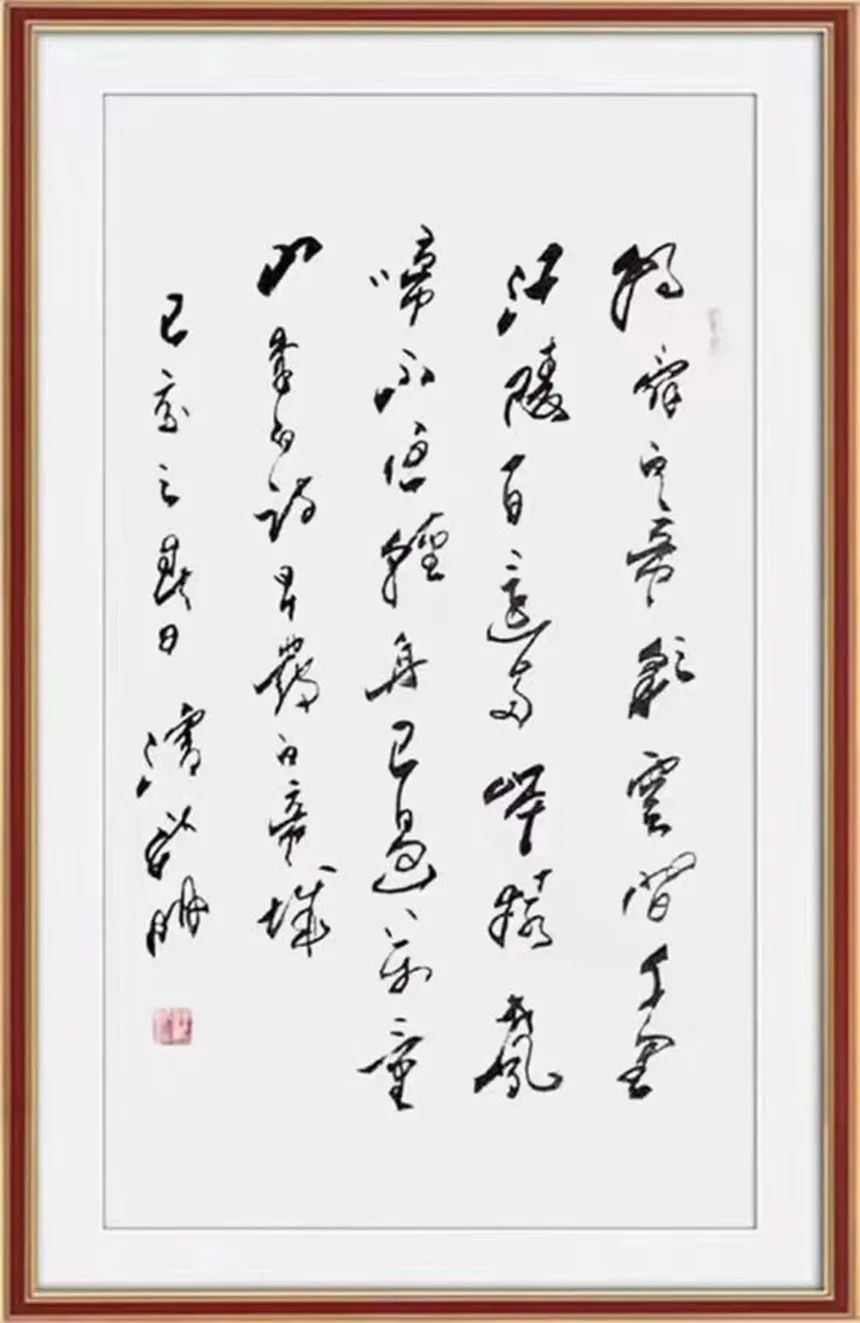 朝辭白帝彩雲間千里
江陵一日還兩岸猿聲
啼不住輕舟已過萬重
山李白詩早發白帝城
己亥之春日